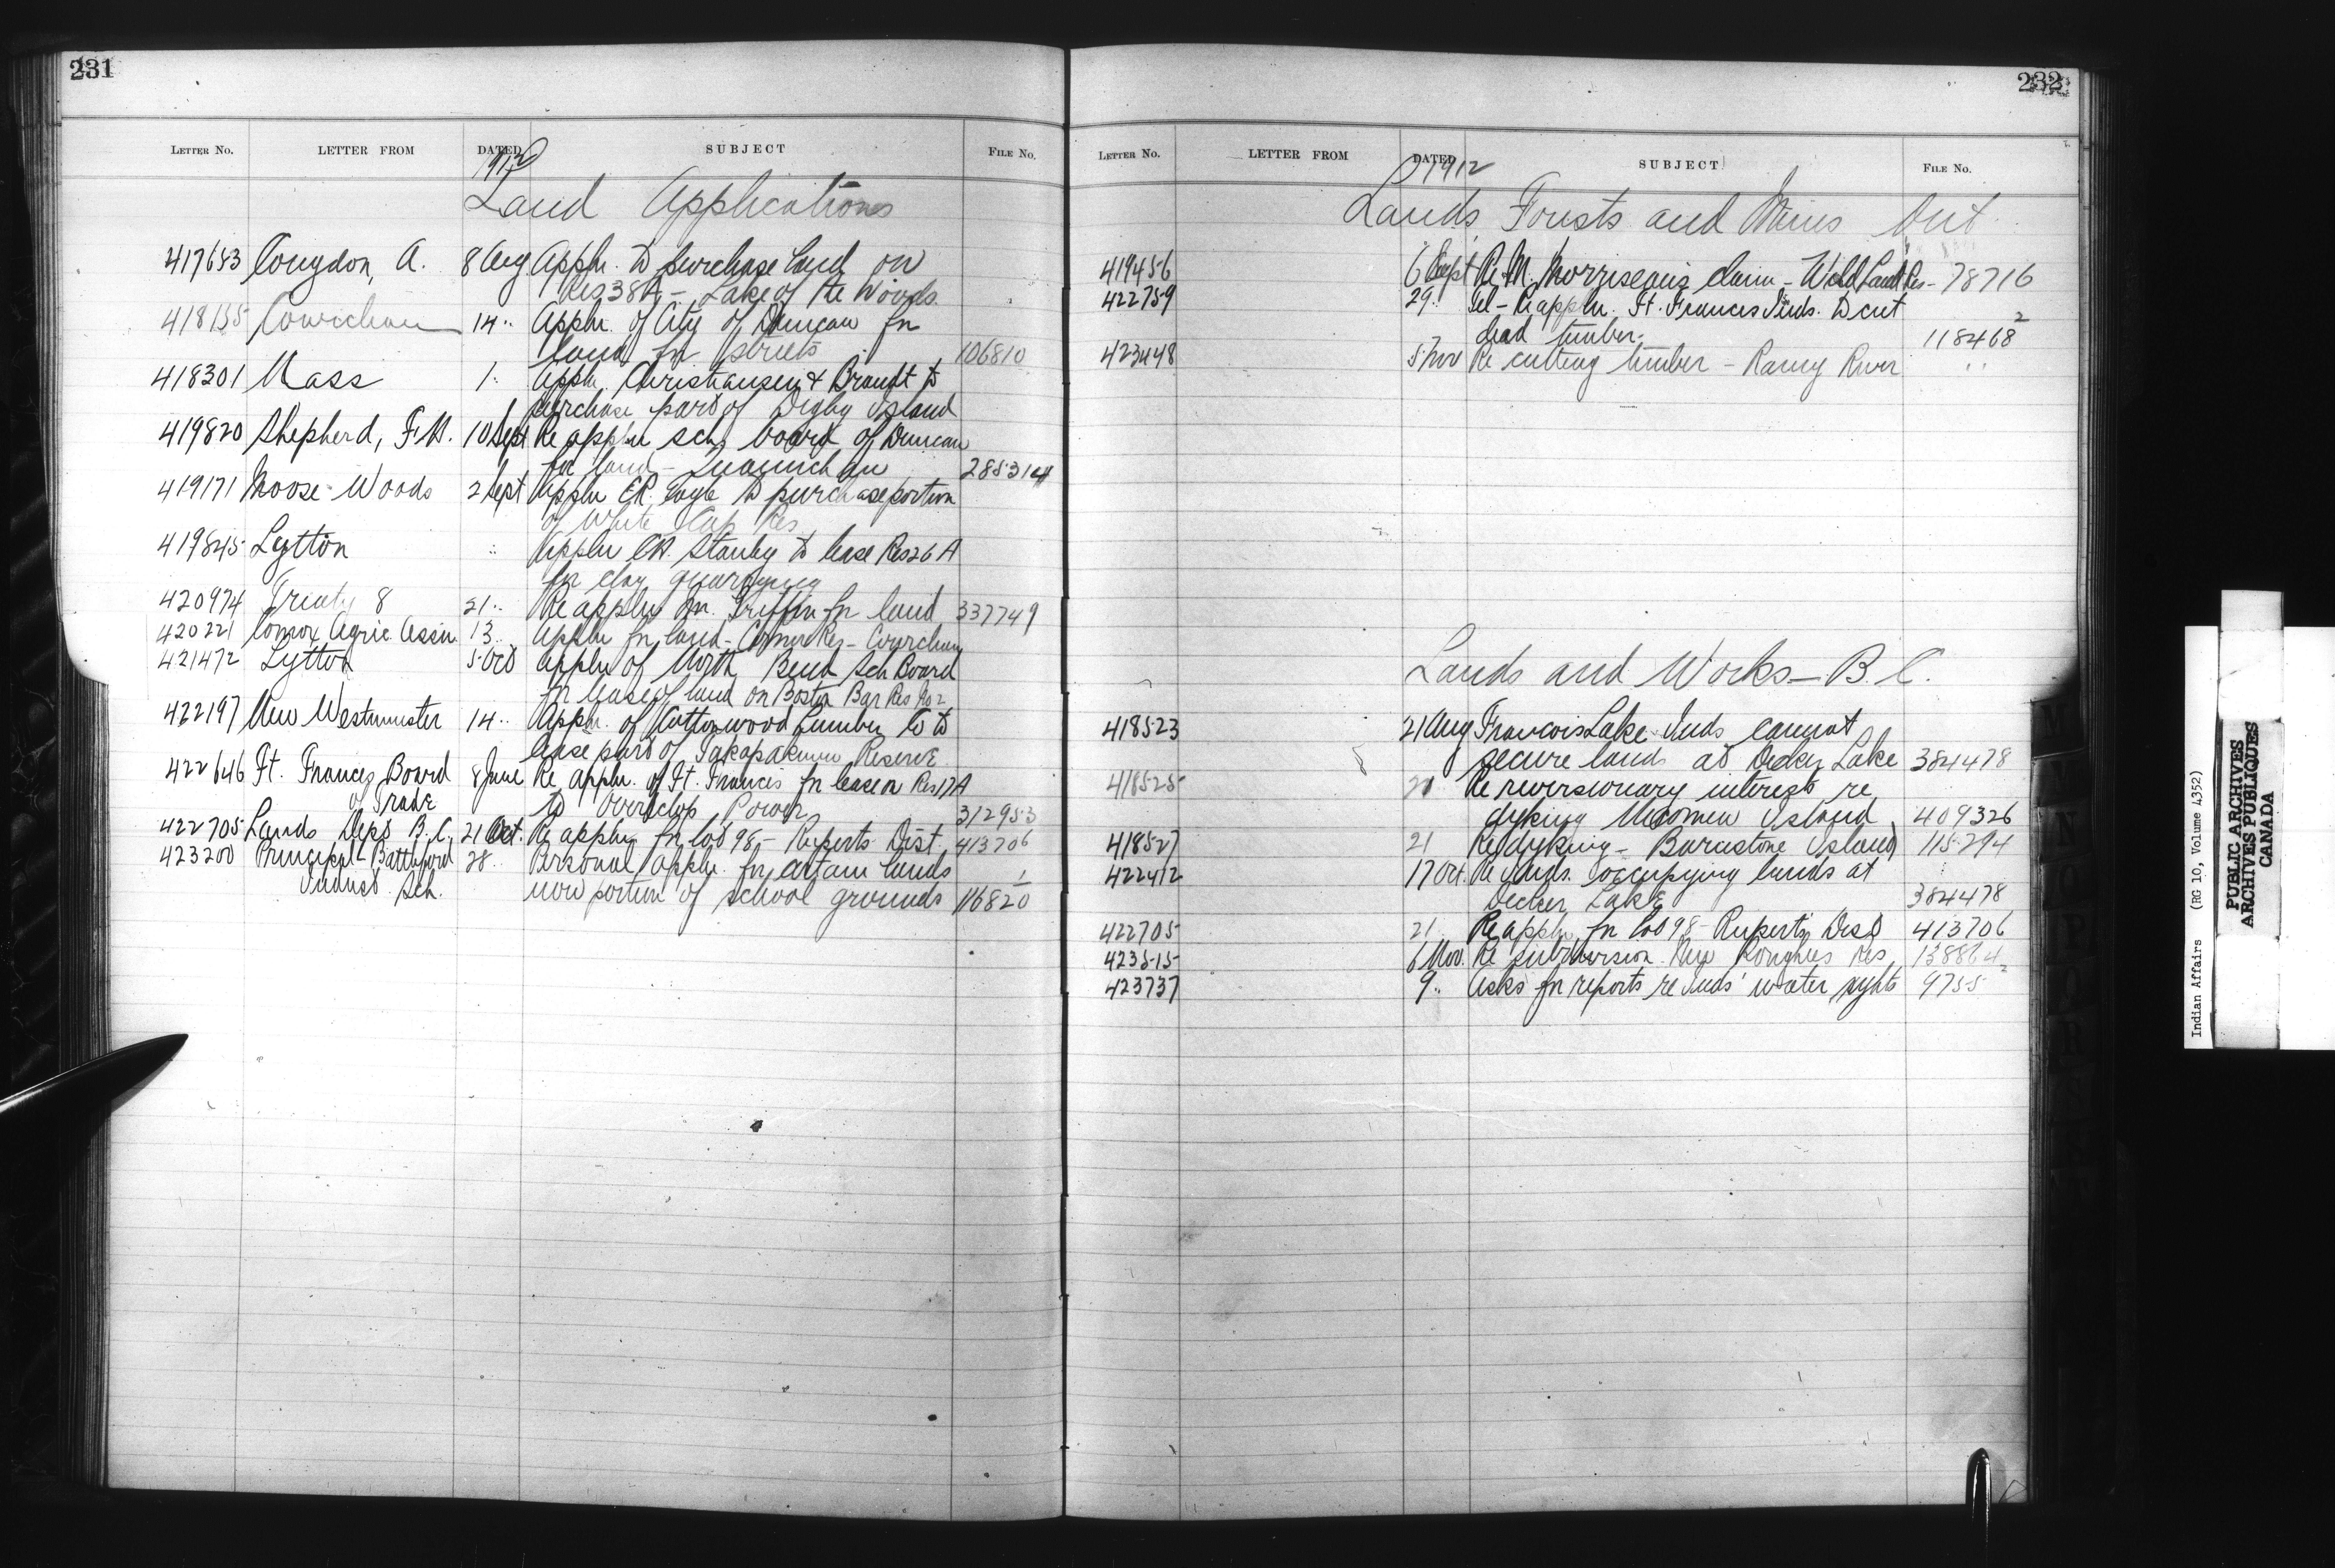 231
LETTER NO. LETTER FROM DATED SUBJECT FILE No.
1912
Land Applications
417653 Congdon, A. 8 Aug Appln. to purchase land on
Res 38A - Lake of the Woods
418135 Cowichan 14 " Appln. of City of Duncan for
land for streets 106810
418301 Nass 1 " Appln. Christiansen & Brandt to
purchase part of Digby Island
419820 Shepherd, F.H. 10 Sept Re appln sch. board of Duncan
for land - 285314
419171 Moose Woods 2 Sept Appln to purchase portion
of White Cap Res
419845 Lytton " Appln Stanley to lease Res 26 A
for clay quarrying
420974 Treaty 8 21 " Re appln Griffin for land 337749
420221 Comox Agric Assn. 13 " Appln for land - Comox Res - Cowichan
421472 Lytton 5 Oct Appln of North Bend Sch Board
for lease of land on Boston Bar Res No 2
422197 New Westminster 14 " Appln. of Cottonwood Lumber Co to
lease part of Reserve
422646 Ft. Frances Board 8 June Re appln. of Ft. Frances for lease on Res 17A
of Trade to Power 312953
422705 Lands Dept B.C. 21 Oct. Re appln for lot 98 - Ruperts Dist. 413706
423200 Principal Battleford 28 " Personal appln. for certain lands
Indust. Sch. now portion of school grounds 116820 1
232
LETTER NO. LETTER FROM DATED SUBJECT FILE No.
1912
Lands Forests and Mines Ont.
419456 6 Sept Re M. Morriseau's claim - Wild Land Res - 78716
422759 29 " Tel - Re appln. Ft. Frances Inds. to cut
dead timber. 118468 2
423448 5 Nov Re cutting timber - Rainy River " "
Lands and Works - B.C.
418523 21 Aug Francois Lake Inds cannot
secure lands at Decker Lake 384478
418525 21 Re reversionary interest re
dyking Nicomen Island 409326
418527 21 Re dyking - Barnstone Island 115294
422412 17 Oct. Re Inds. occupying lands at
Decker Lake 384478
422705 21 Re appln for lot 98 - Ruperts Dist 413706
423515 6 Nov. Re subdivision Songhees Res 138864
423737 9 " Asks for reports re Inds' water rights 9755 2
Indian Affairs (RG 10, Volume 4352)
PUBLIC ARCHIVES
ARCHIVES PUBLIQUES
CANADA